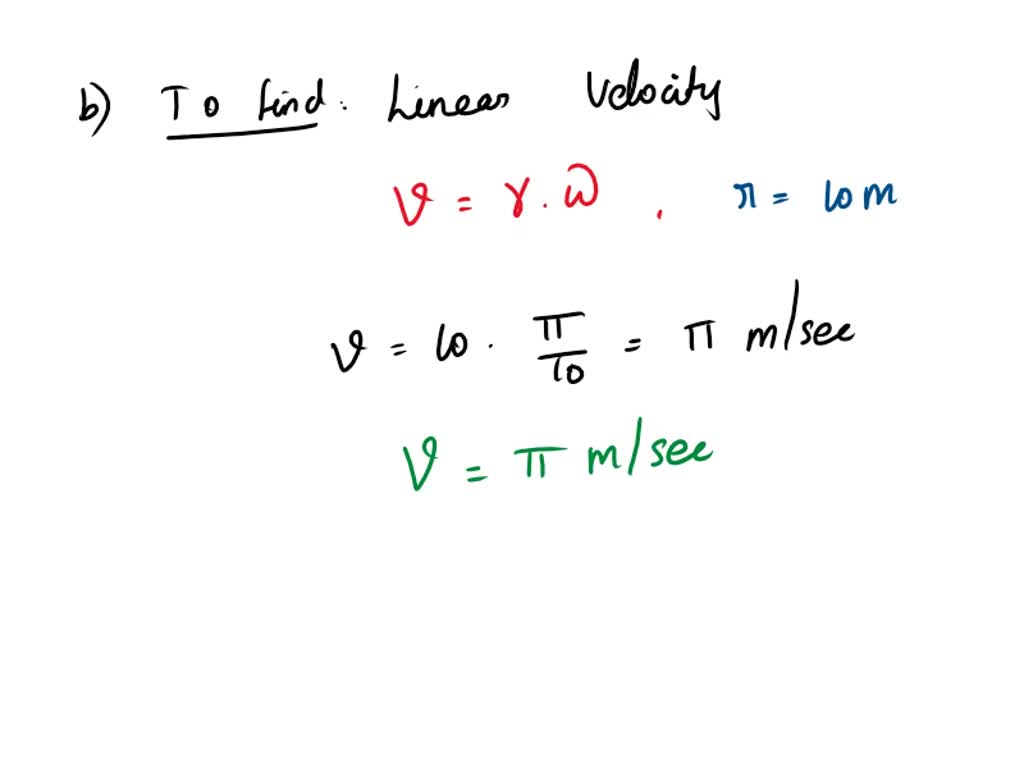 b) To find: Linear Velocity
v = r . ω , r = 10 m
v = 10 . π/10 = π m/sec
v = π m/sec